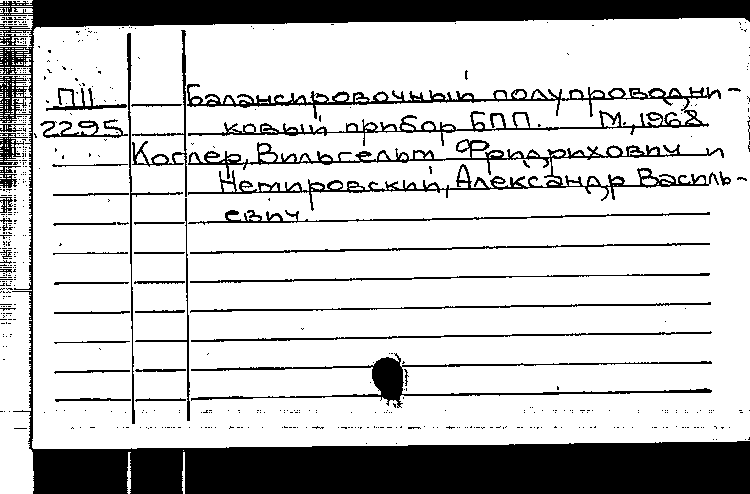 П11 Балансировочный полупроводни-
2295 ковый прибор БПП. М., 1968
Кослер, Вильгельм Фридрихович и
Немировский, Александр Василь-
евич.